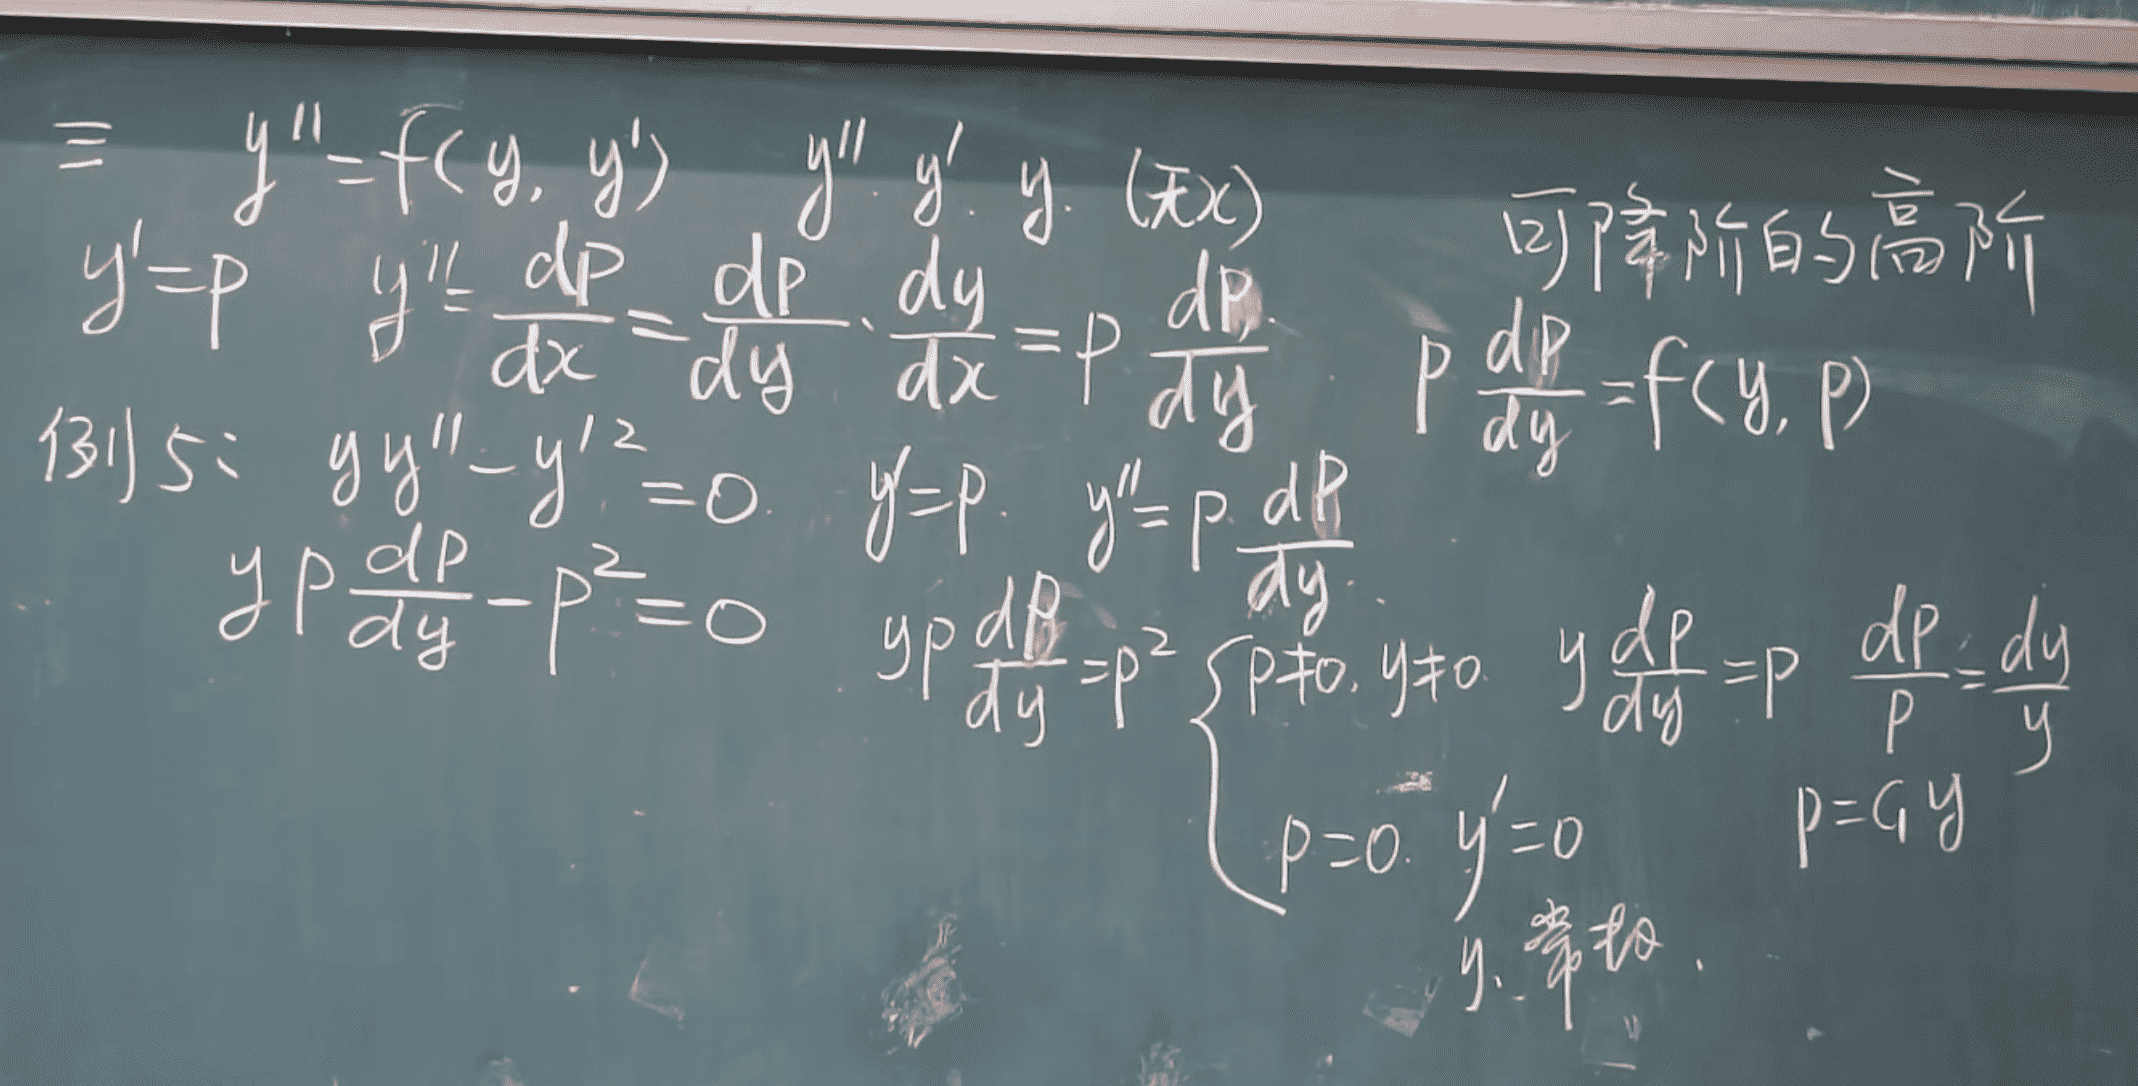 三 y''=f(y, y') y''. y'. y. (无x)
可降阶的高阶
y'=p y''=dp/dx=dp/dy·dy/dx=p dp/dy. p dp/dy=f(y, p)
例5: yy''-y'²=0. y'=p. y''=p. dp/dy.
yp dp/dy-p²=0 yp dp/dy=p² { p≠0, y≠0. y dp/dy=p dp/p=dy/y
p=C₁y
p=0. y'=0
y. 常数.